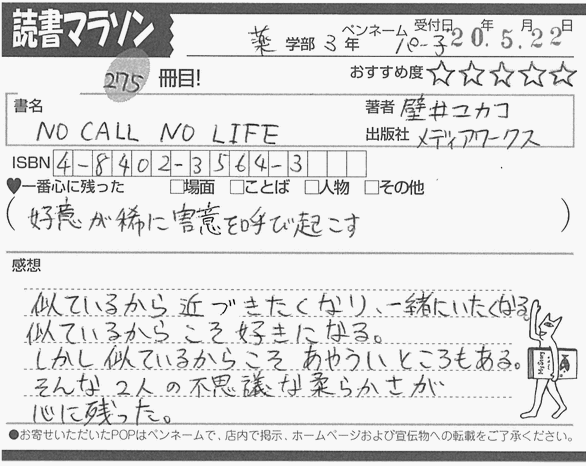 読書マラソン
薬 学部 3 年 ペンネーム パー子 受付日 20年 5月 22
275 冊目! おすすめ度 ☆☆☆☆☆
書名 著者 壁井ユカコ
NO CALL NO LIFE 出版社 メディアワークス
ISBN 4-8402-3564-3
♥一番心に残った □場面 □ことば □人物 □その他
(好意が稀に害意を呼び起こす)
感想
似ているから近づきたくなり、一緒にいたくなる。
似ているからこそ好きになる。
しかし似ているからこそあやういところもある。
そんな2人の不思議な柔らかさが
心に残った。
●お寄せいただいたPOPはペンネームで、店内で掲示、ホームページおよび宣伝物への転載をご了承ください。